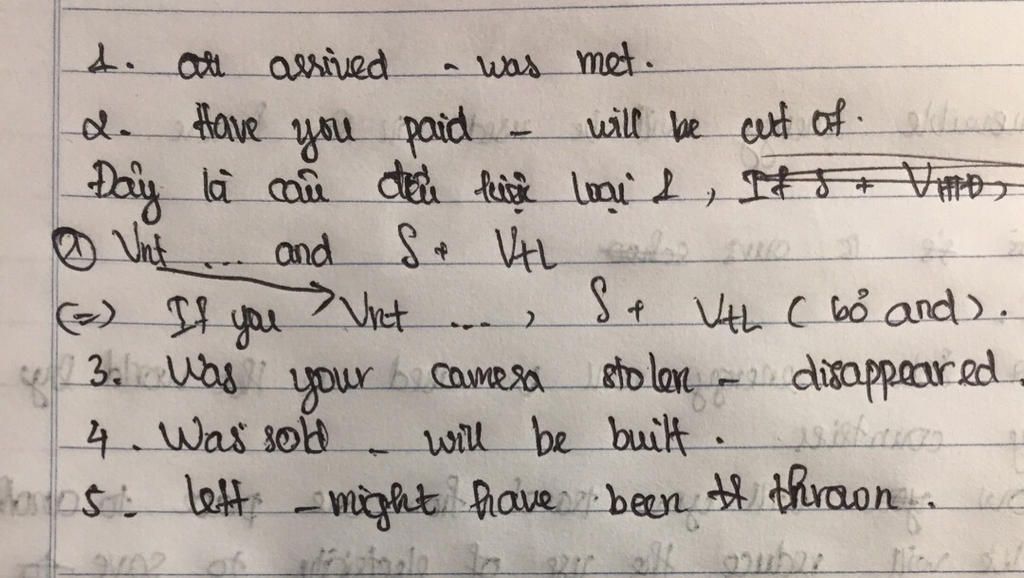 1. arrived - was met.
2. Have you paid - will be cut of.
Đây là câu điều kiện loại 1, If S + V
② Vnt ... and S + VtL
(=) If you Vnt ..., S + VtL (bỏ and).
3. Was your camera stolen - disappeared.
4. Was sold - will be built.
5. left - might have been thrown.